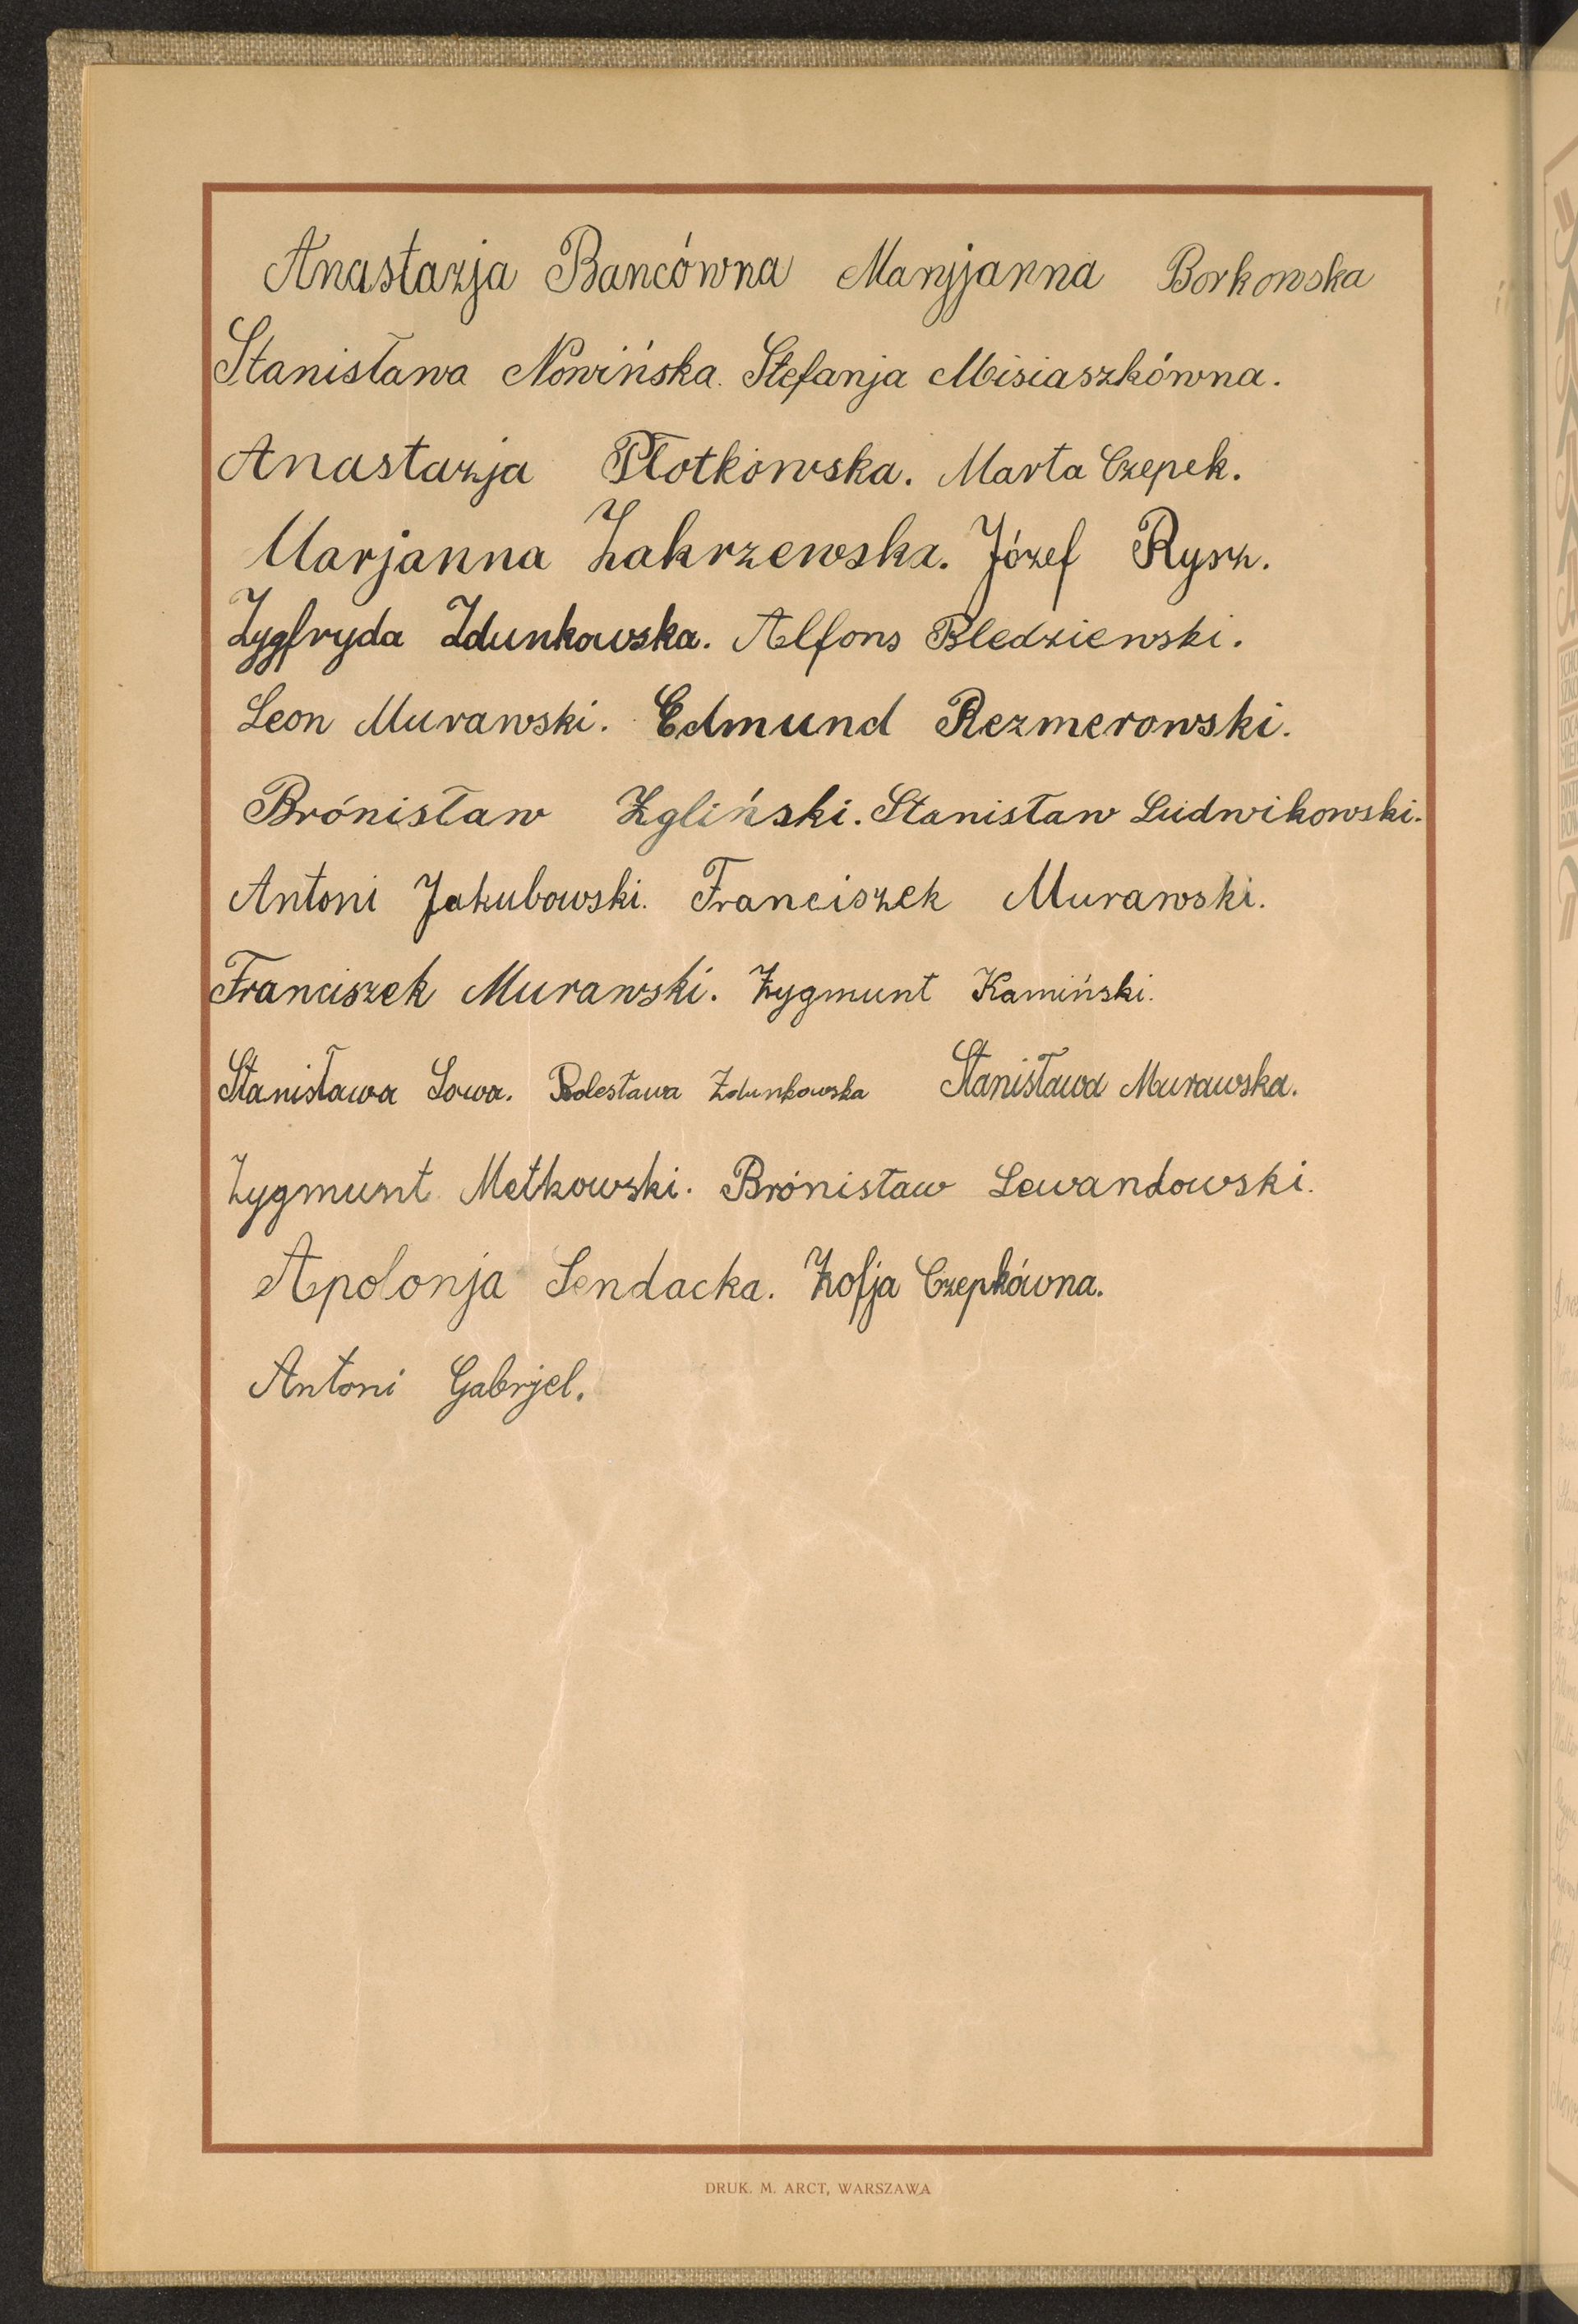 Anastazja Bancówna Marjjanna Borkowska
Stanisława Nowińska. Stefanja Misiaszkówna.
Anastazja Płotkowska. Marta Czepek.
Marjanna Zakrzewska. Józef Rysz.
Zygfryda Zdunkowska. Alfons Bledziewski.
Leon Murawski. Edmund Rezmerowski.
Brónisław Zgliński. Stanisław Ludwikowski.
Antoni Jakubowski. Franciszek Murawski.
Franciszek Murawski. Zygmunt Kamiński.
Stanisława Sowa. Bolesława Zdunkowska Stanisława Murawska.
Zygmunt Metkowski. Brónisław Lewandowski.
Apolonja Sendacka. Zofja Czepkówna.
Antoni Gabrjel.
DRUK. M. ARCT, WARSZAWA